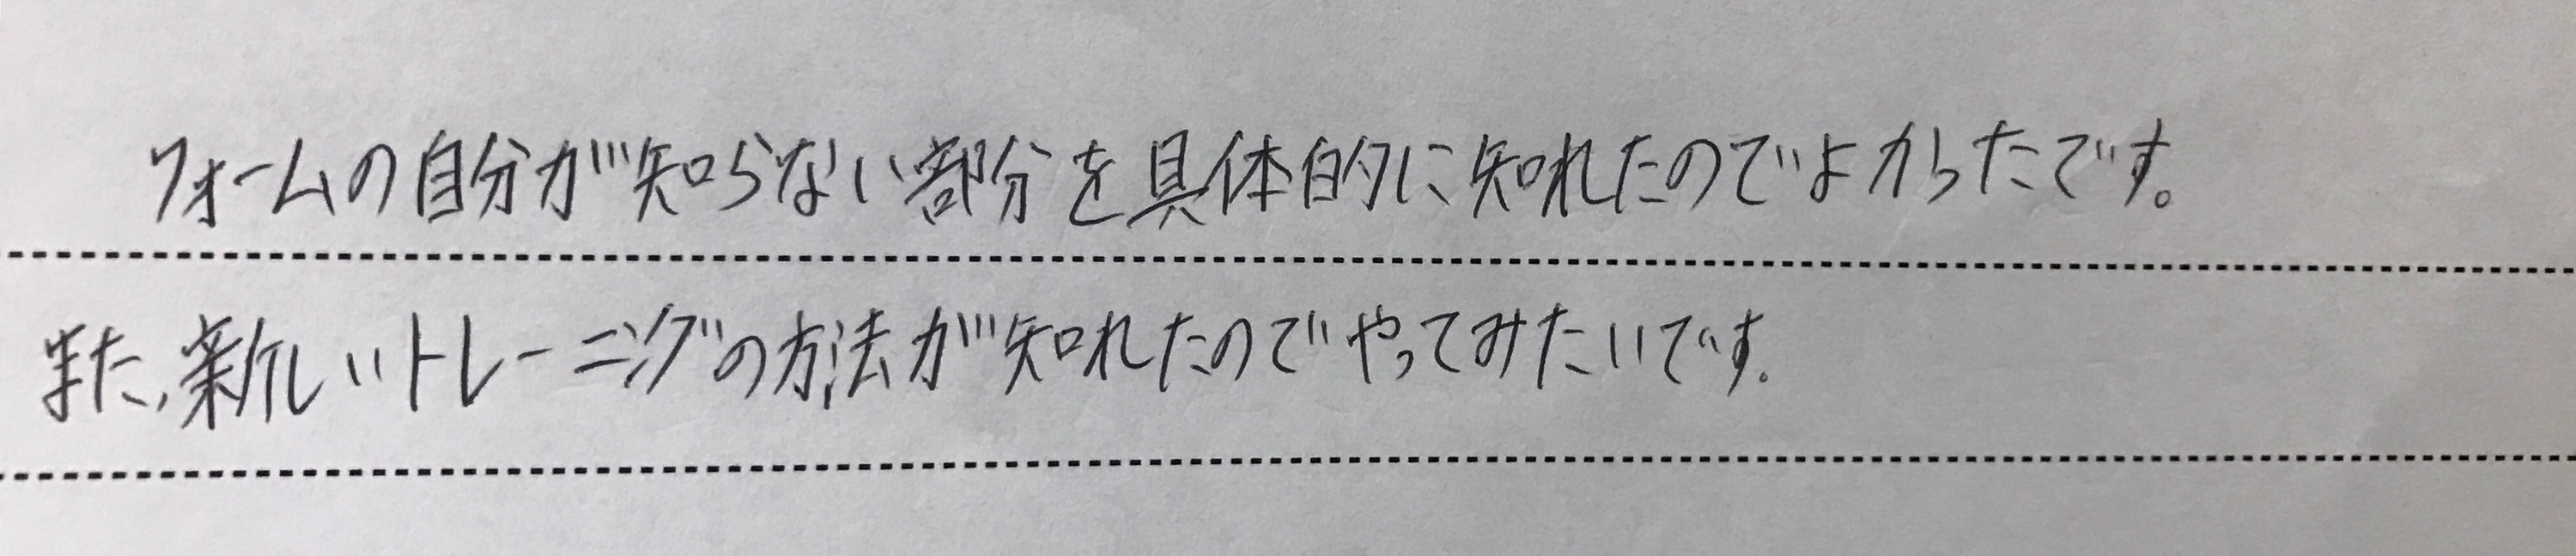 フォームの自分が知らない部分を具体的に知れたのでよかったです。
また、新しいトレーニングの方法が知れたのでやってみたいです。